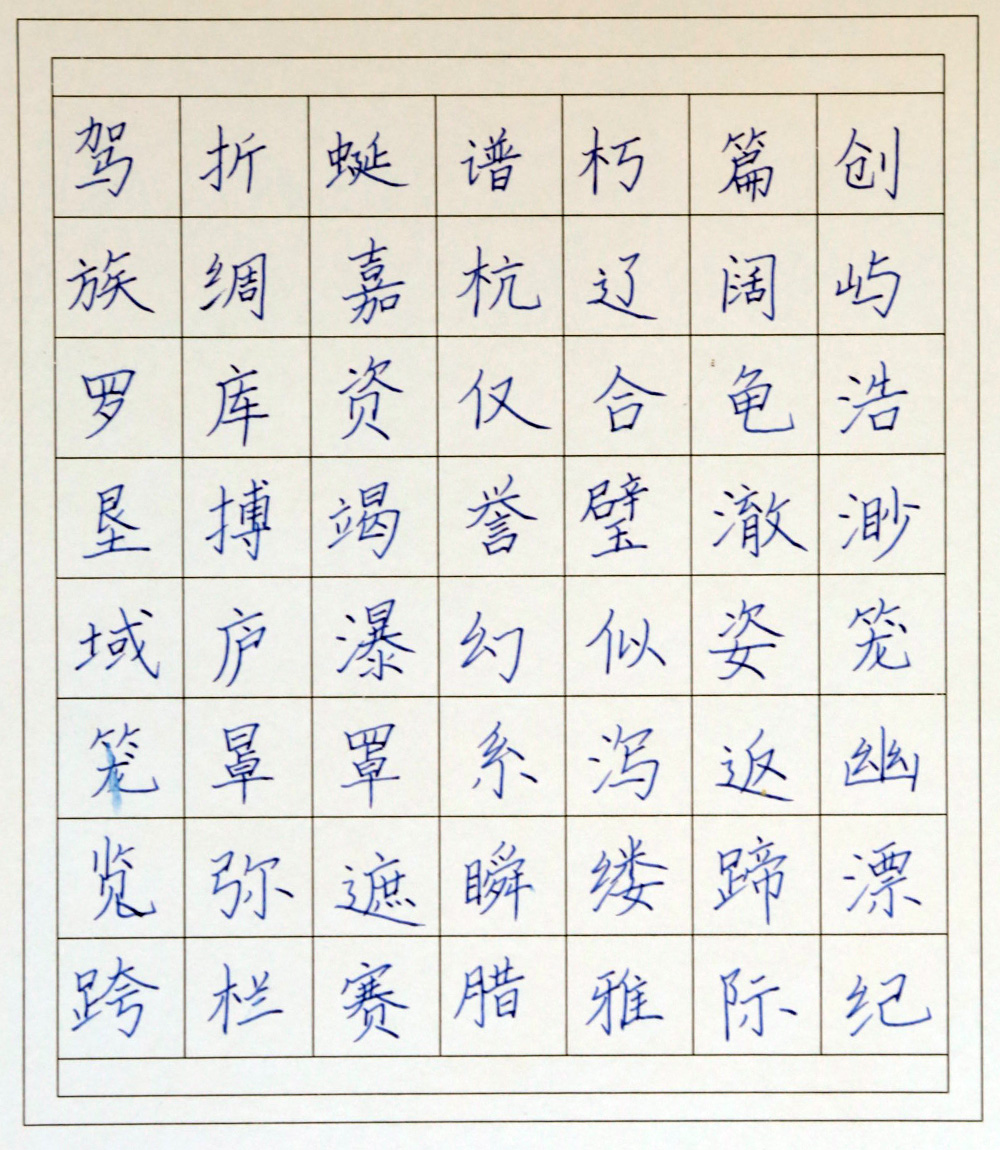 驾折蜒谱朽篇创
族绸嘉杭辽阔屿
罗库资仅合龟浩
垦搏竭誉璧澈渺
域庐瀑幻似姿笼
笼罩罩系泻返幽
览弥遮瞬缕蹄漂
跨栏赛腊雅际纪